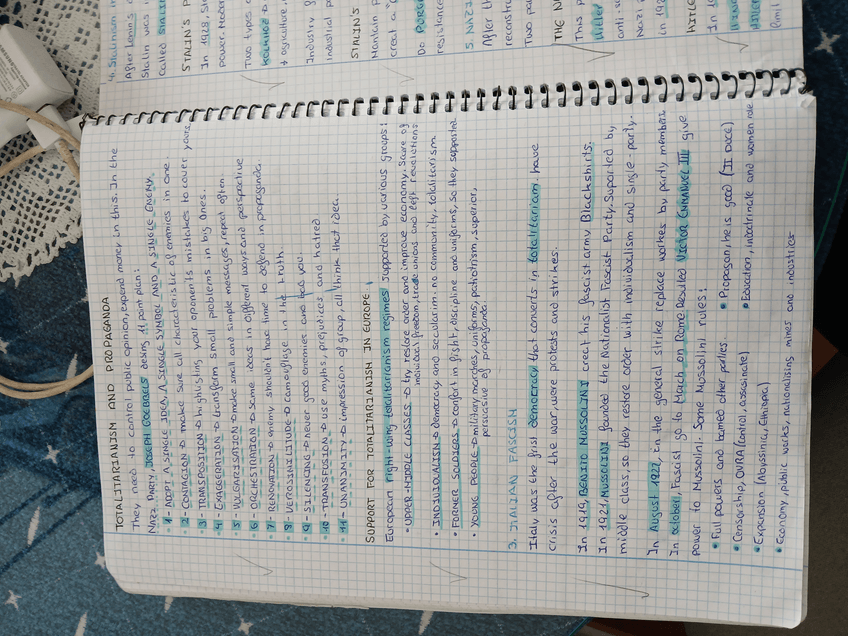 TOTALITARIANISM AND PROPAGANDA
They need to control public opinion, expend money in this. In the
Nazi Party JOSEPH GOEBBELS desing 11 point plan:
1- ADOPT A SINGLE IDEA, A SINGLE SYMBOL AND A SINGLE ENEMY.
2- CONTAGION → make sure all characteristic of enemies in one.
3- TRANSPOSITION → highlighting your oponents mistakes to cover yours
4- EXAGERATION → transform small problems in big ones.
5- VULGARISATION → make small and simple messages, repeat often.
6- ORCHESTRATION → same ideas in different ways and perspective
7- RENOVATION → enemy shouldn't have time to defend in propaganda.
8- VEROSIMILITUDE → camouflage in the truth.
9- SILENCING → never good enemies and bad you.
10- TRANSFUSION → use myths, prejudices, and hatred
11- UNANIMITY → impression of group, all think that idea.
SUPPORT FOR TOTALITARIANISM IN EUROPE
European right-wing totalitarianism regimes supported by various groups:
• UPPER-MIDDLE CLASSES → try restore order and improve economy. Scare of
individual freedom, trade unions and left revolutions
• INDIVIDUALISM → democracy and secularism. no community, totalitarism
• FORMER SOLDIERS → confort in fight, discipline and uniforms, so they supported
• YOUNG PEOPLE → military marches, uniforms, patriotism, superior,
persuasive of propaganda
3. ITALIAN FASCISM
Italy was the first democracy that converts in totalitarism have
crisis after the war, were protests and strikes.
In 1919, BENITO MUSSOLINI creat his fascist army Blackshirts.
In 1921, MUSSOLINI founded the Nationalist Fascist Party. Suported by
middle class, so they restore order with individualism and single party.
In August 1922, in the general strike replace workers by party members
In october, Fascist go to March on Rome. Resulted Victor Emmanuel III give
power to Mussolini. Some Mussolini rules:
• Full powers and banned other parties
• Propagan, he is good (Il DUCE)
• Censorship, OVRA (control, assasinate)
• Education, indoctrinate and women role
• Expansion (Abyssinia, Ethiopia)
• Economy, public works, nationalising mines and industries
After Lenin's
Stalin was
called
STALIN'S
In 1928,
power.
Two types
kolkhoz
+ agriculture,
Industry
industrial
STALIN'S
Mantain
creat a
Do
resistance
5. NAZI
After the
reconst
Two pa
THE N
This p
Hitler
anti-s
Nazi
in 192
HITLE
In 19